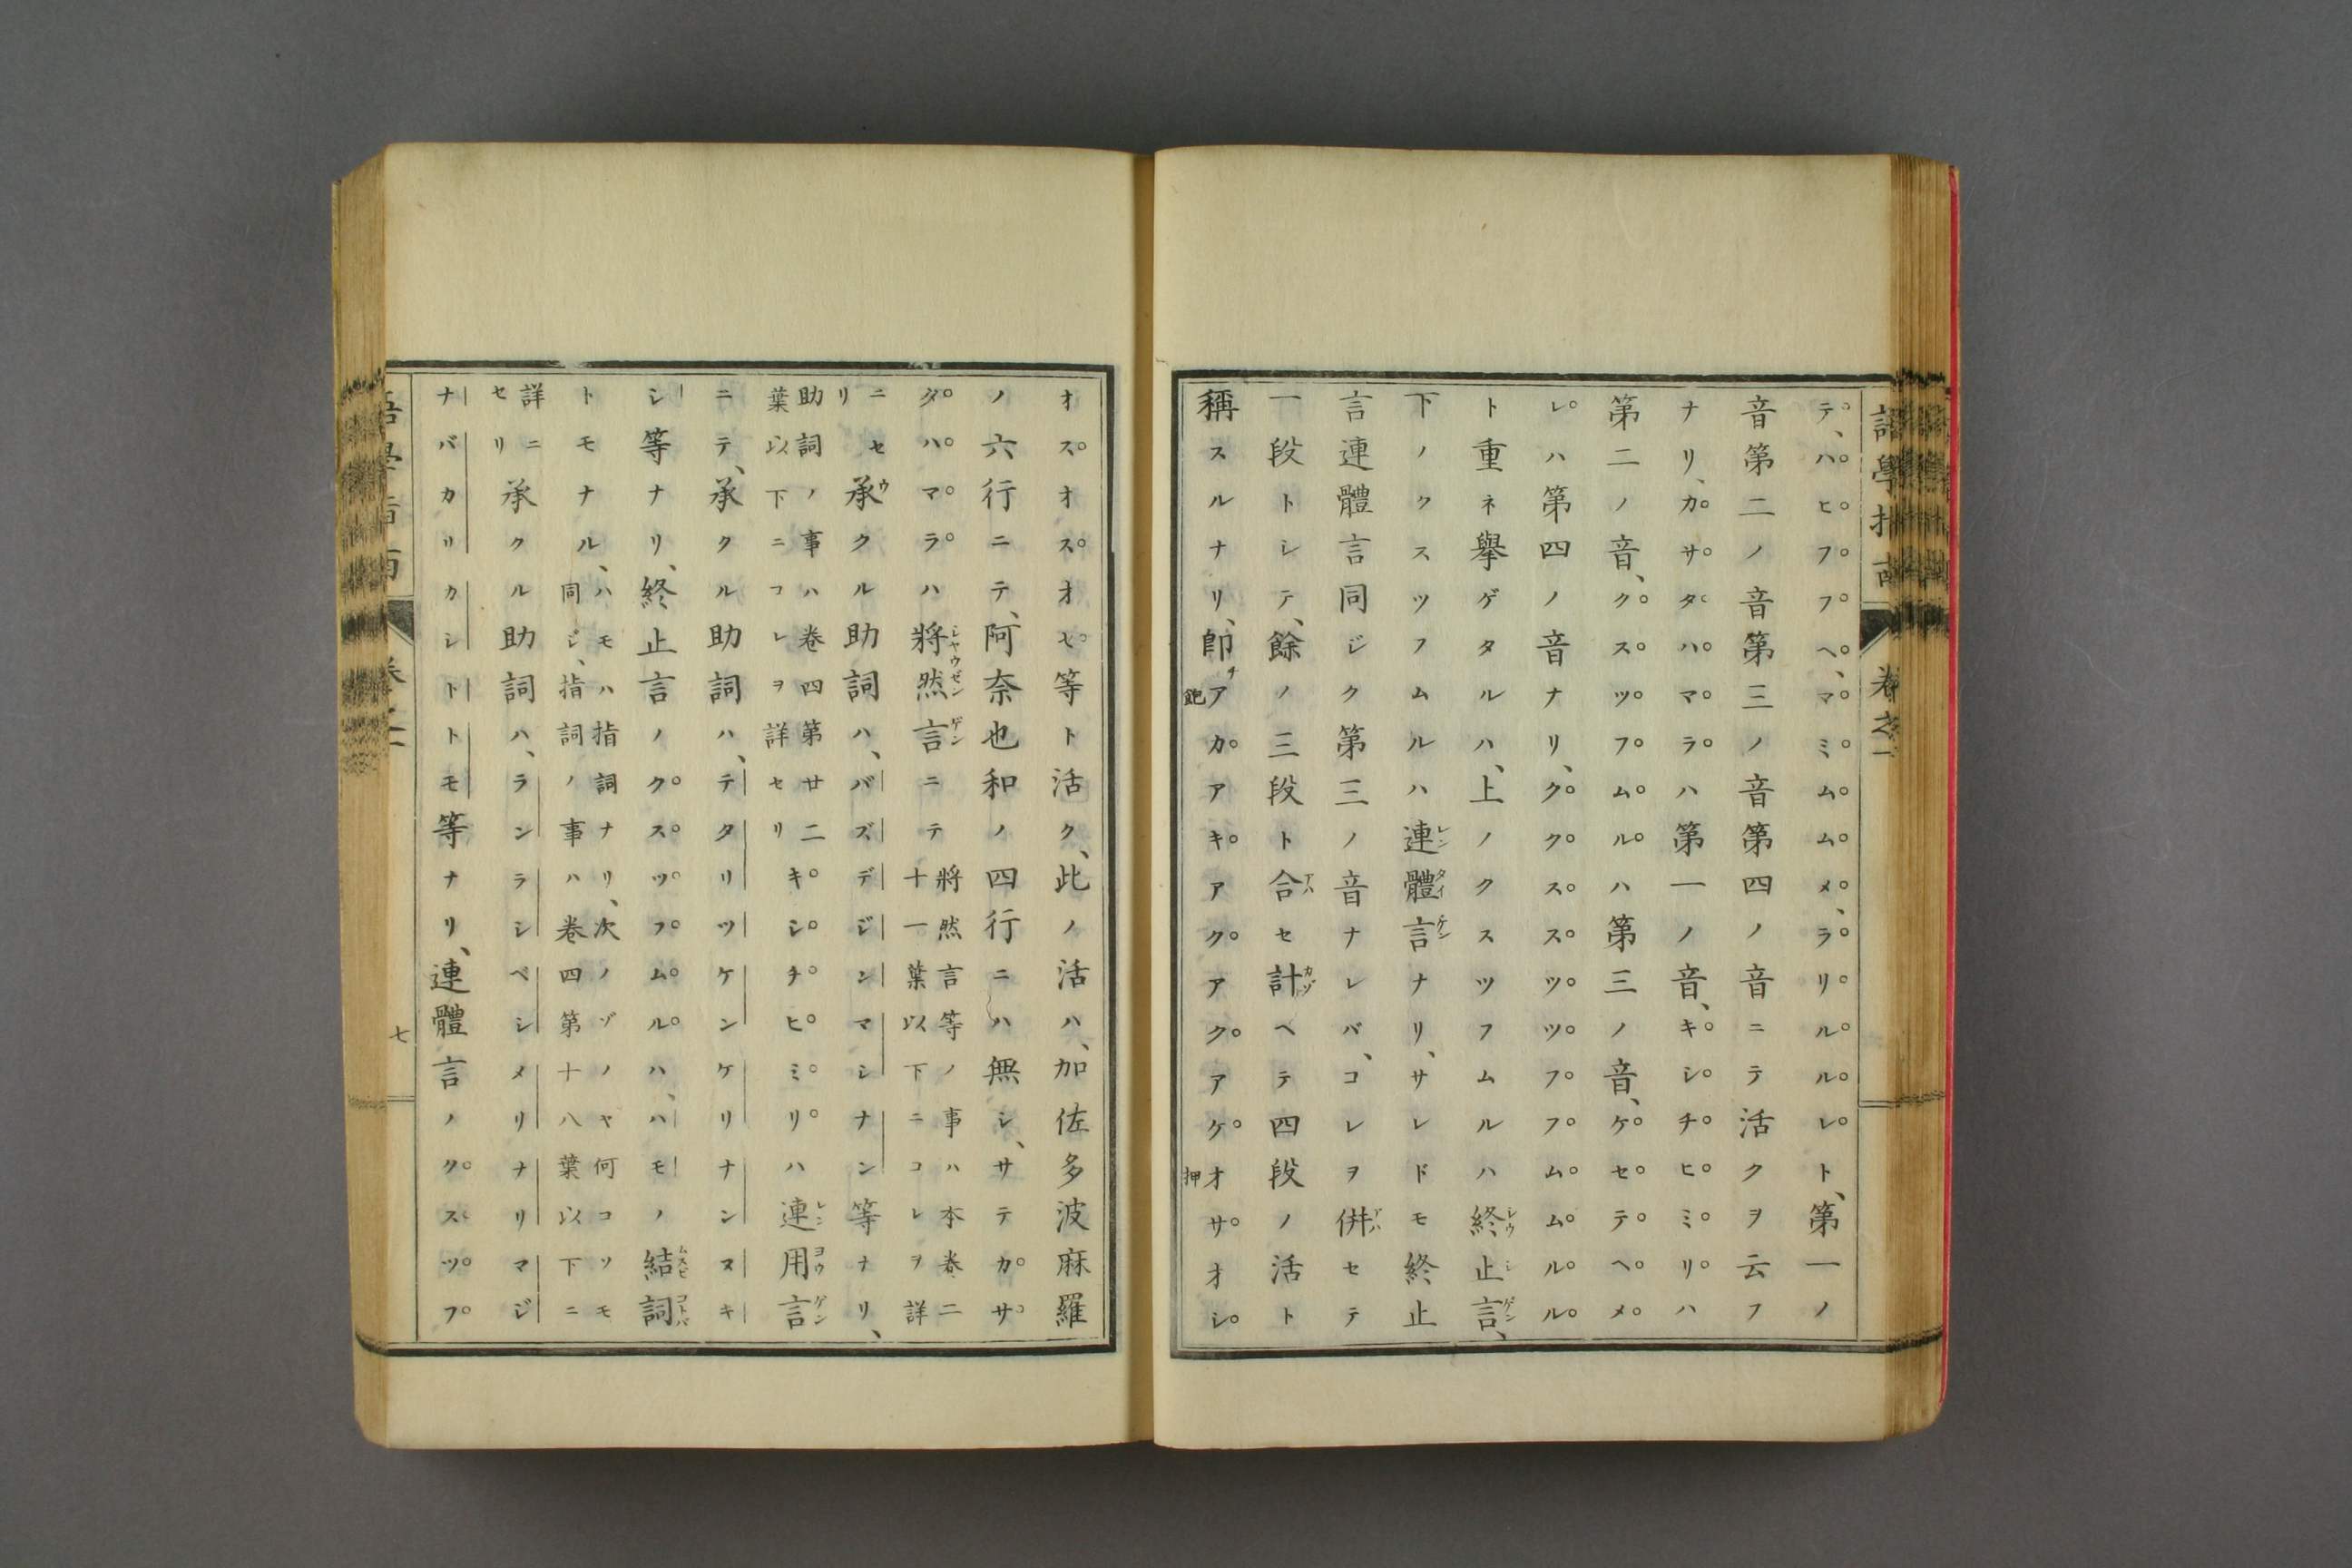 テ、ハヒフフヘ、マミムムメ、ラリルルレト、第一ノ
音第二ノ音第三ノ音第四ノ音ニテ活クヲ云フ
ナリ、カサタハマラハ第一ノ音、キシチヒミリハ
第二ノ音、クスツフムルハ第三ノ音、ケセテヘメ
レハ第四ノ音ナリ、ククススツツフフムムルル
ト重ネ擧ゲタルハ、上ノクスツフムルハ終止言、
下ノクスツフムルハ連體言ナリ、サレドモ終止
言連體言同ジク第三ノ音ナレバ、コレヲ併セテ
一段トシテ、餘ノ三段ト合セ計ヘテ四段ノ活ト
稱スルナリ、卽チアカアキアクアクアケオサオシ
オスオスオセ等ト活ク、此ノ活ハ、加佐多波麻羅
ノ六行ニテ、阿奈也和ノ四行ニハ無シ、サテカサ
タハマラハ將然言ニテ將然言等ノ事ハ本卷二十一葉以下ニコレヲ詳
ニセリ承クル助詞ハ、バズデジンマシナン等ナリ、
助詞ノ事ハ卷四第廿二葉以下ニコレヲ詳セリキシチヒミリハ連用言
ニテ、承クル助詞ハ、テタリツケンケリナンヌキ
シ等ナリ、終止言ノクスツフムルハ、ハモノ結詞
トモナル、ハモハ指詞ナリ、次ノゾノヤ何コソモ同ジ、指詞ノ事ハ卷四第十八葉以下ニ
詳ニセリ承クル助詞ハ、ランラシベシメリナリマジ
ナバカリカシトトモ等ナリ、連體言ノクスツフ
語學指南
卷之一
七